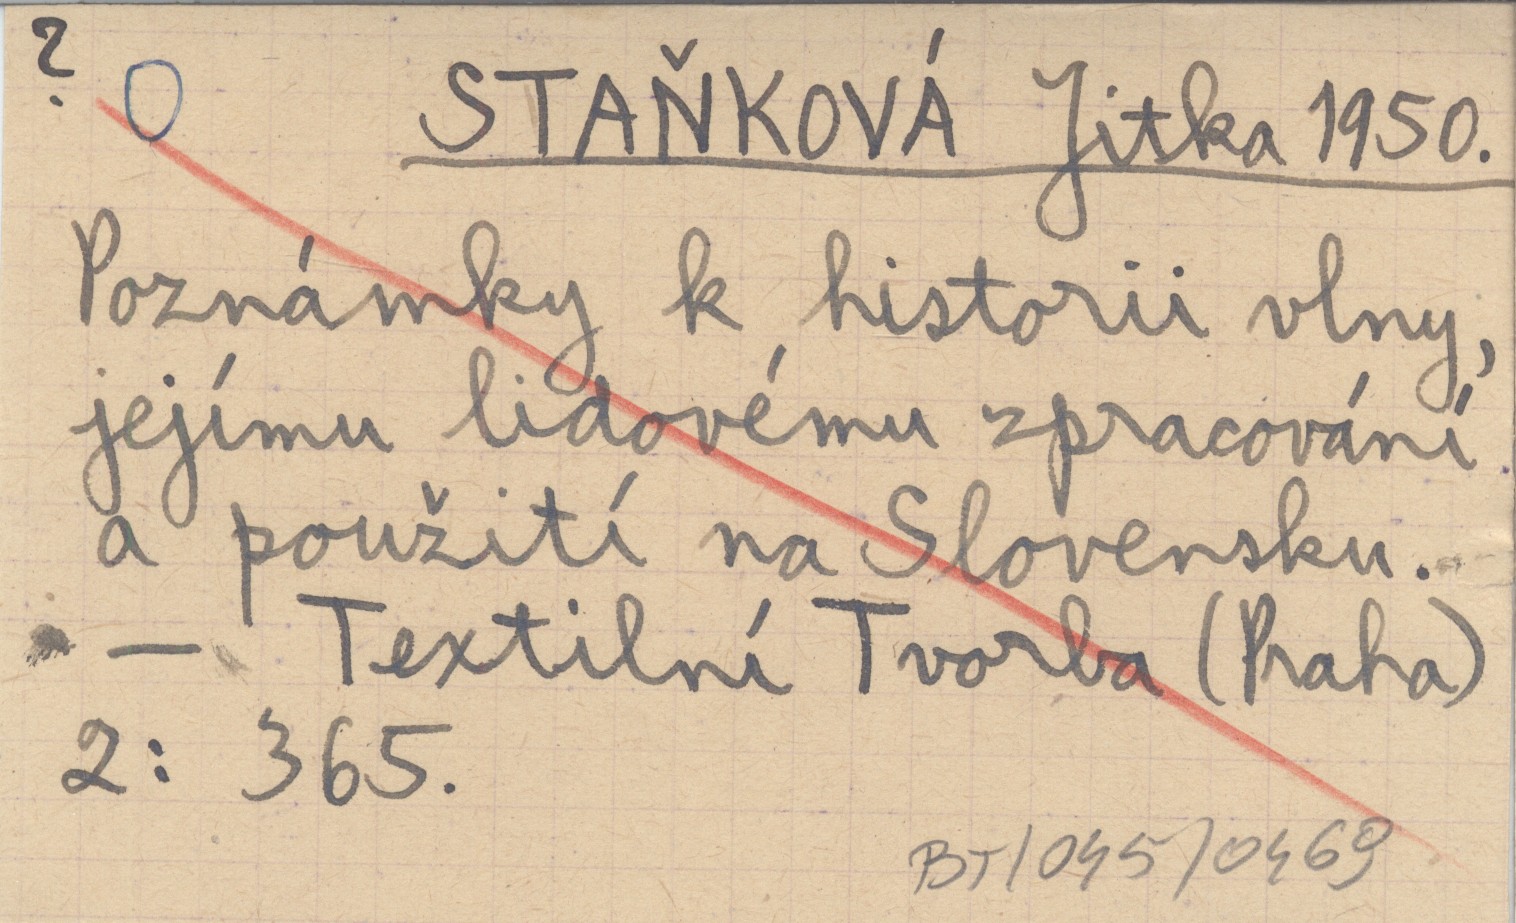 ? O STAŇKOVÁ Jitka 1950.
Poznámky k historii vlny,
jejímu lidovému zpracování
a použití na Slovensku.
— Textilní Tvorba (Praha)
2: 365.
BT/045/0469